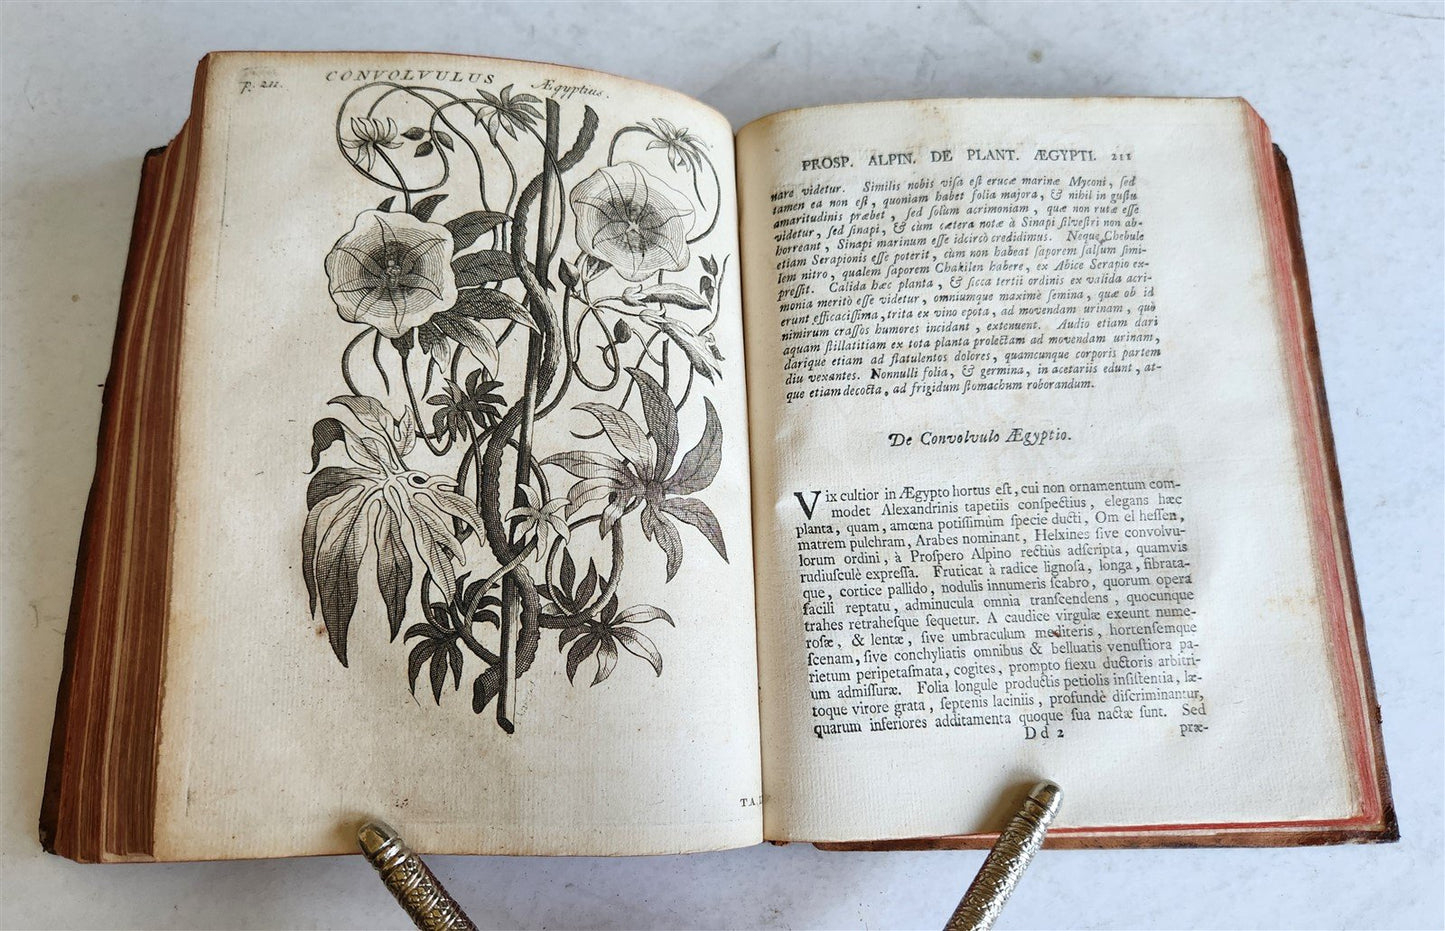 P. 211.
CONVOLVULUS
Ægyptius.
TA
PROSP. ALPIN. DE PLANT. ÆGYPTI. 211
nare videtur. Similis nobis viſa eſt erucæ marinæ Myconi, ſed
tamen ea non eſt, quoniam habet folia majora, & nihil in guſtu
amaritudinis præbet, ſed ſolum acrimoniam, quæ non rutæ eſſe
videtur, ſed ſinapi, & cùm cætera notæ à Sinapi ſilveſtri non ab-
horreant, Sinapi marinum eſſe idcircò credidimus. Neque Chebule
etiam Serapionis eſſe poterit, cùm non habeat ſaporem ſalſum ſimi-
lem nitro, qualem ſaporem Chakilen habere, ex Abice Serapio ex-
preſſit. Calida hæc planta, & ſicca tertii ordinis ex valida acri-
monia meritò eſſe videtur, omniumque maximè ſemina, quæ ob id
erunt efficaciſſima, trita ex vino epota, ad movendam urinam, quò
nimirum craſſos humores incidant, extenuent. Audio etiam dari
aquam ſtillatitiam ex tota planta prolectam ad movendam urinam,
darique etiam ad flatulentos dolores, quamcunque corporis partem
diu vexantes. Nonnulli folia, & germina, in acetariis edunt, at-
que etiam decocta, ad frigidum ſtomachum roborandum.
De Convolvulo Ægyptio.
Vix cultior in Ægypto hortus eſt, cui non ornamentum com-
modet Alexandrinis tapetiis conſpectius, elegans hæc
planta, quam, amœna potiſſimùm ſpecie ducti, Om el heſſen,
matrem pulchram, Arabes nominant, Helxines ſive convolvu-
lorum ordini, à Proſpero Alpino rectius adſcripta, quamvis
rudiuſculè expreſſa. Fruticat à radice lignoſa, longa, fibrata-
que, cortice pallido, nodulis innumeris ſcabro, quorum opera
facili reptatu, adminucula omnia tranſcendens, quocunque
trahes retraheſque ſequetur. A caudice virgulæ exeunt nume-
roſæ, & lentæ, ſive umbraculum mediteris, hortenſemque
ſcenam, ſive conchyliatis omnibus & belluatis venuſtiora pa-
rietum peripetaſmata, cogites, prompto flexu ductoris arbitri-
um admiſſuræ. Folia longule productis petiolis inſiſtentia, læ-
toque virore grata, ſeptenis laciniis, profundè diſcriminantur,
quarum inferiores additamenta quoque ſua nactæ ſunt. Sed
Dd 2
præ-